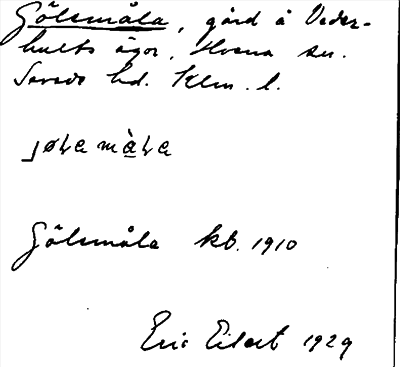 Gölsmåla, gård å Veder-
hults ägor, Hvena sn.
Sevede hd. Klm. l.
Gölsmåla kb. 1910
Eric Eilert 1929